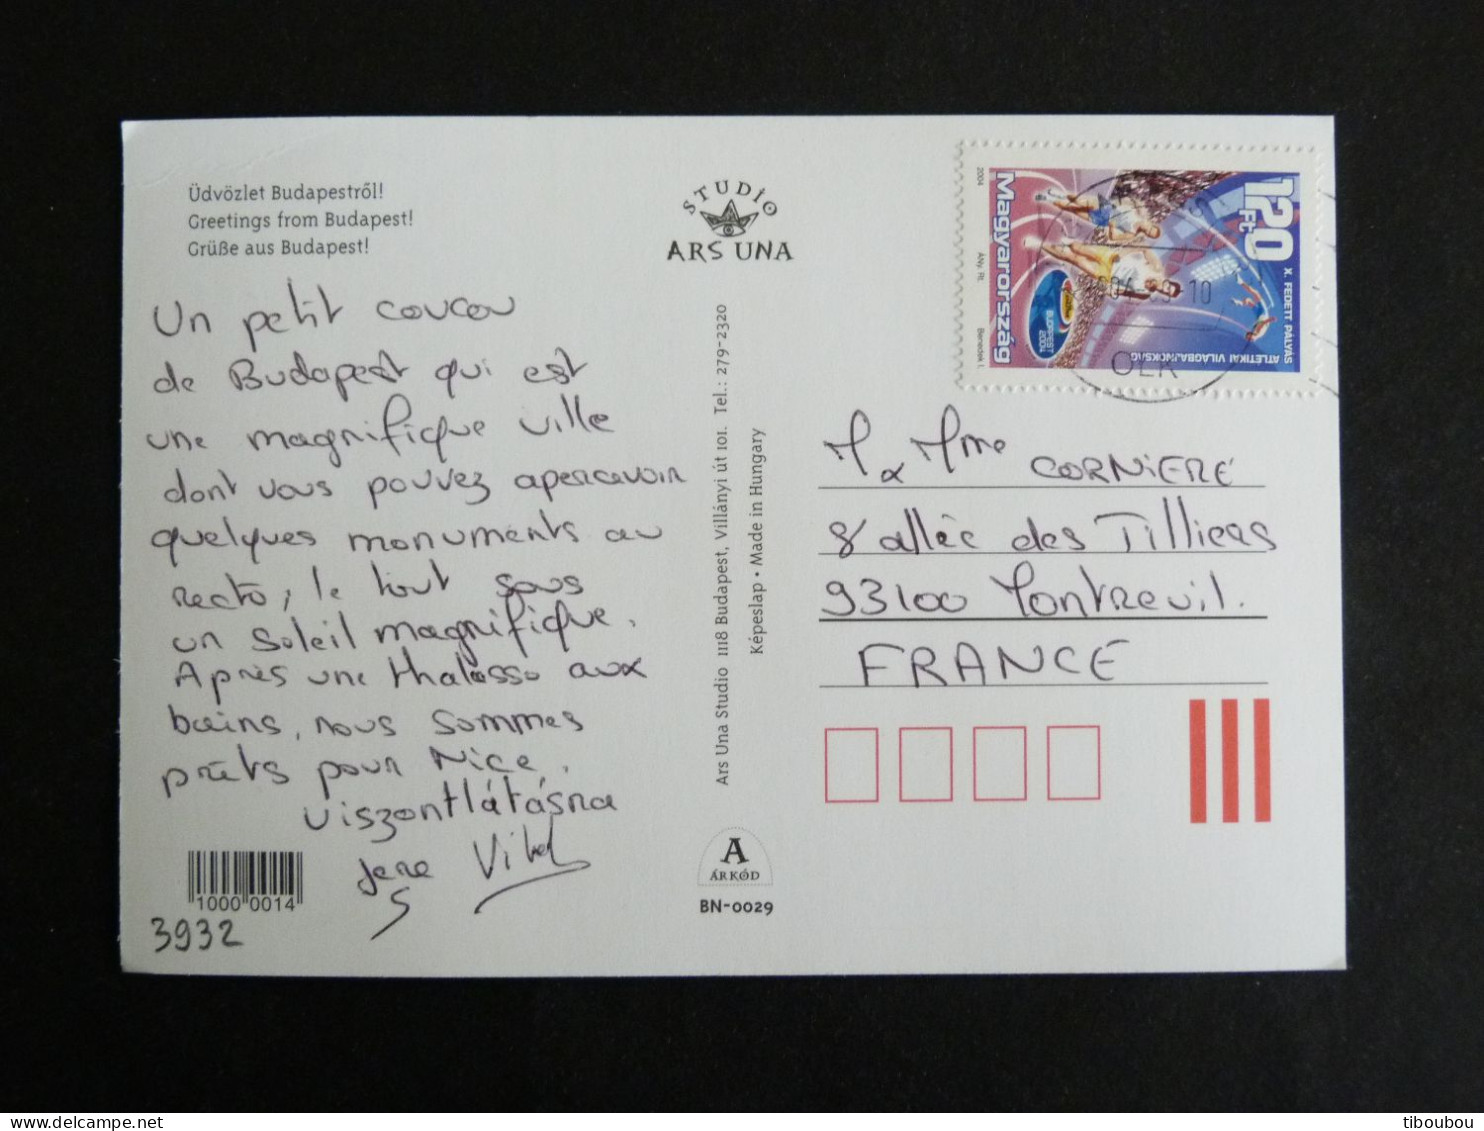 Üdvözlet Budapestről!
Greetings from Budapest!
Grüße aus Budapest!
Un petit coucou
de Budapest qui est
une magnifique ville
dont vous pouvez apercevoir
quelques monuments au
recto, le tout sous
un soleil magnifique.
Après une thalasso aux
bains, nous sommes
prêts pour Nice.
Viszontlátásra
1000 0014
3932
STUDIO
ARS UNA
Ars Una Studio 1118 Budapest, Villányi út 101. Tel.: 279-2320
Képeslap • Made in Hungary
A
ÁRKÓD
BN-0029
120
Ft
X. FEDETT PÁLYÁS
ATLÉTIKAI VILÁGBAJNOKSÁG
BUDAPEST
2004
Magyarország
2004
ANy. Rt.
Benedek I.
10
M & Mme CORNIERE
8 allée des Tilliers
93100 Montreuil.
FRANCE
tiboubou